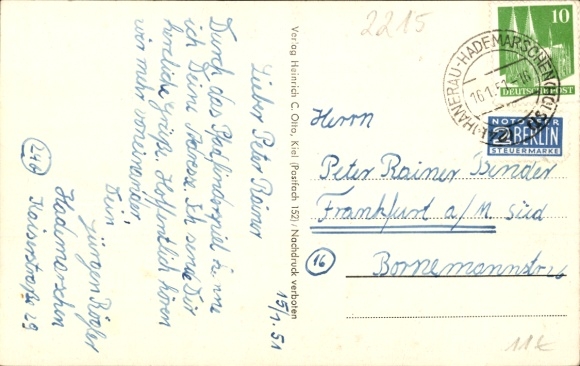 2215
15/1.51
Lieber Peter Rainer
Durch das Pfadfinderspiel
ich Deine Adresse. Ich sende Dir
herzliche Grüße. Hoffentlich hören
wir mehr voneinander.
Dein
Jürgen
24b
Hademarschen
Kaiserstraße 29
Verlag Heinrich C. Otto, Kiel (Postfach 152) / Nachdruck verboten
10
DEUTSCHE POST
HANERAU-HADEMARSCHEN (HOLST)
16.1.51.-16
NOTOPFER
2 BERLIN
STEUERMARKE
Herrn
Peter Rainer Bender
Frankfurt a/M. Süd
16
Bornemannstr.
11€